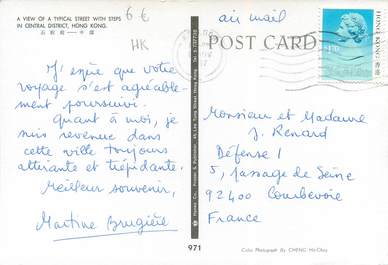 A VIEW OF A TYPICAL STREET WITH STEPS
IN CENTRAL DISTRICT, HONG KONG.
6 €
HK
air mail
POST CARD
HONG KONG
J'espère que votre
voyage s'est agréable-
ment poursuivi.
Quant à moi, je
suis revenue dans
cette ville toujours
attirante et trépidante.
Meilleur souvenir,
Martine Brugière
Monsieur et Madame
J. Renard
Défense 1
5, passage de Seine
92400 Courbevoie
France
971
Color Photograph By CHENG Ho-Choy